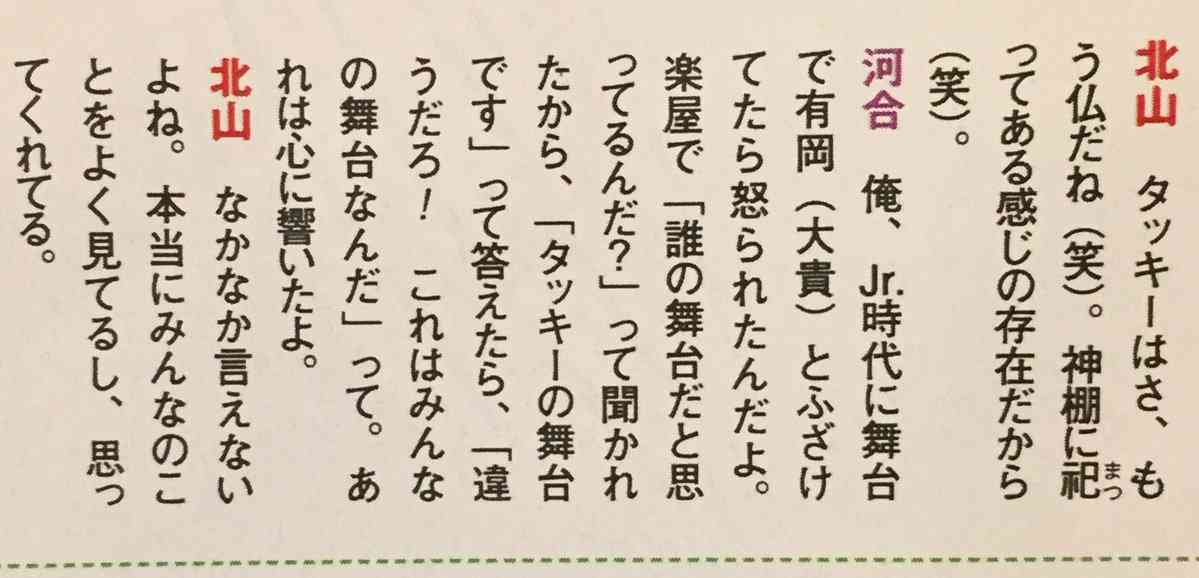 北山　タッキーはさ、も
う仏だね（笑）。神棚に祀まつ
ってある感じの存在だから
（笑）。
河合　俺、Jr.時代に舞台
で有岡（大貴）とふざけ
てたら怒られたんだよ。
楽屋で「誰の舞台だと思
ってるんだ？」って聞かれ
たから、「タッキーの舞台
です」って答えたら、「違
うだろ！　これはみんな
の舞台なんだ」って。あ
れは心に響いたよ。
北山　なかなか言えない
よね。本当にみんなのこ
とをよく見てるし、思っ
てくれてる。